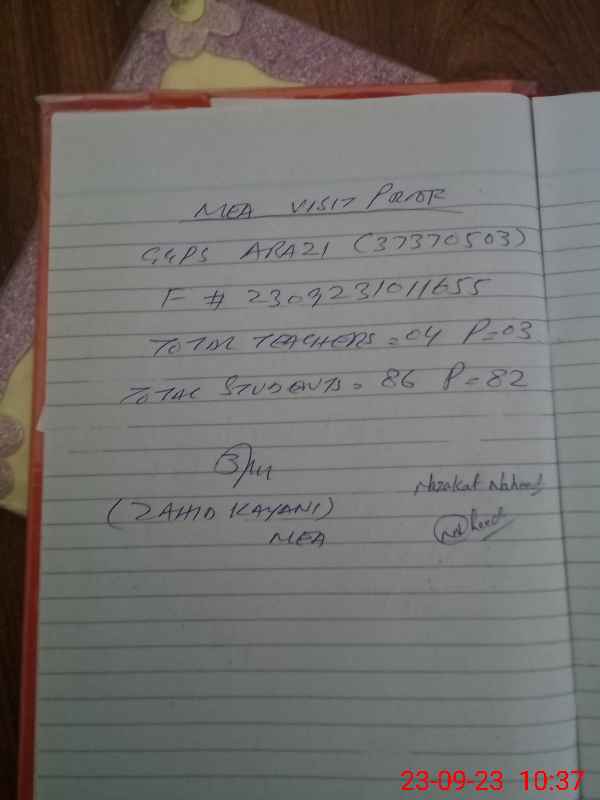 MEA VISIT PROOF
GGPS ARAZI (37370503)
F # 2309231011655
TOTAL TEACHERS = 04 P = 03
TOTAL STUDENTS = 86 P = 82
(ZAHID KAYANI)
MEA
Nazakat Naheed
23-09-23 10:37